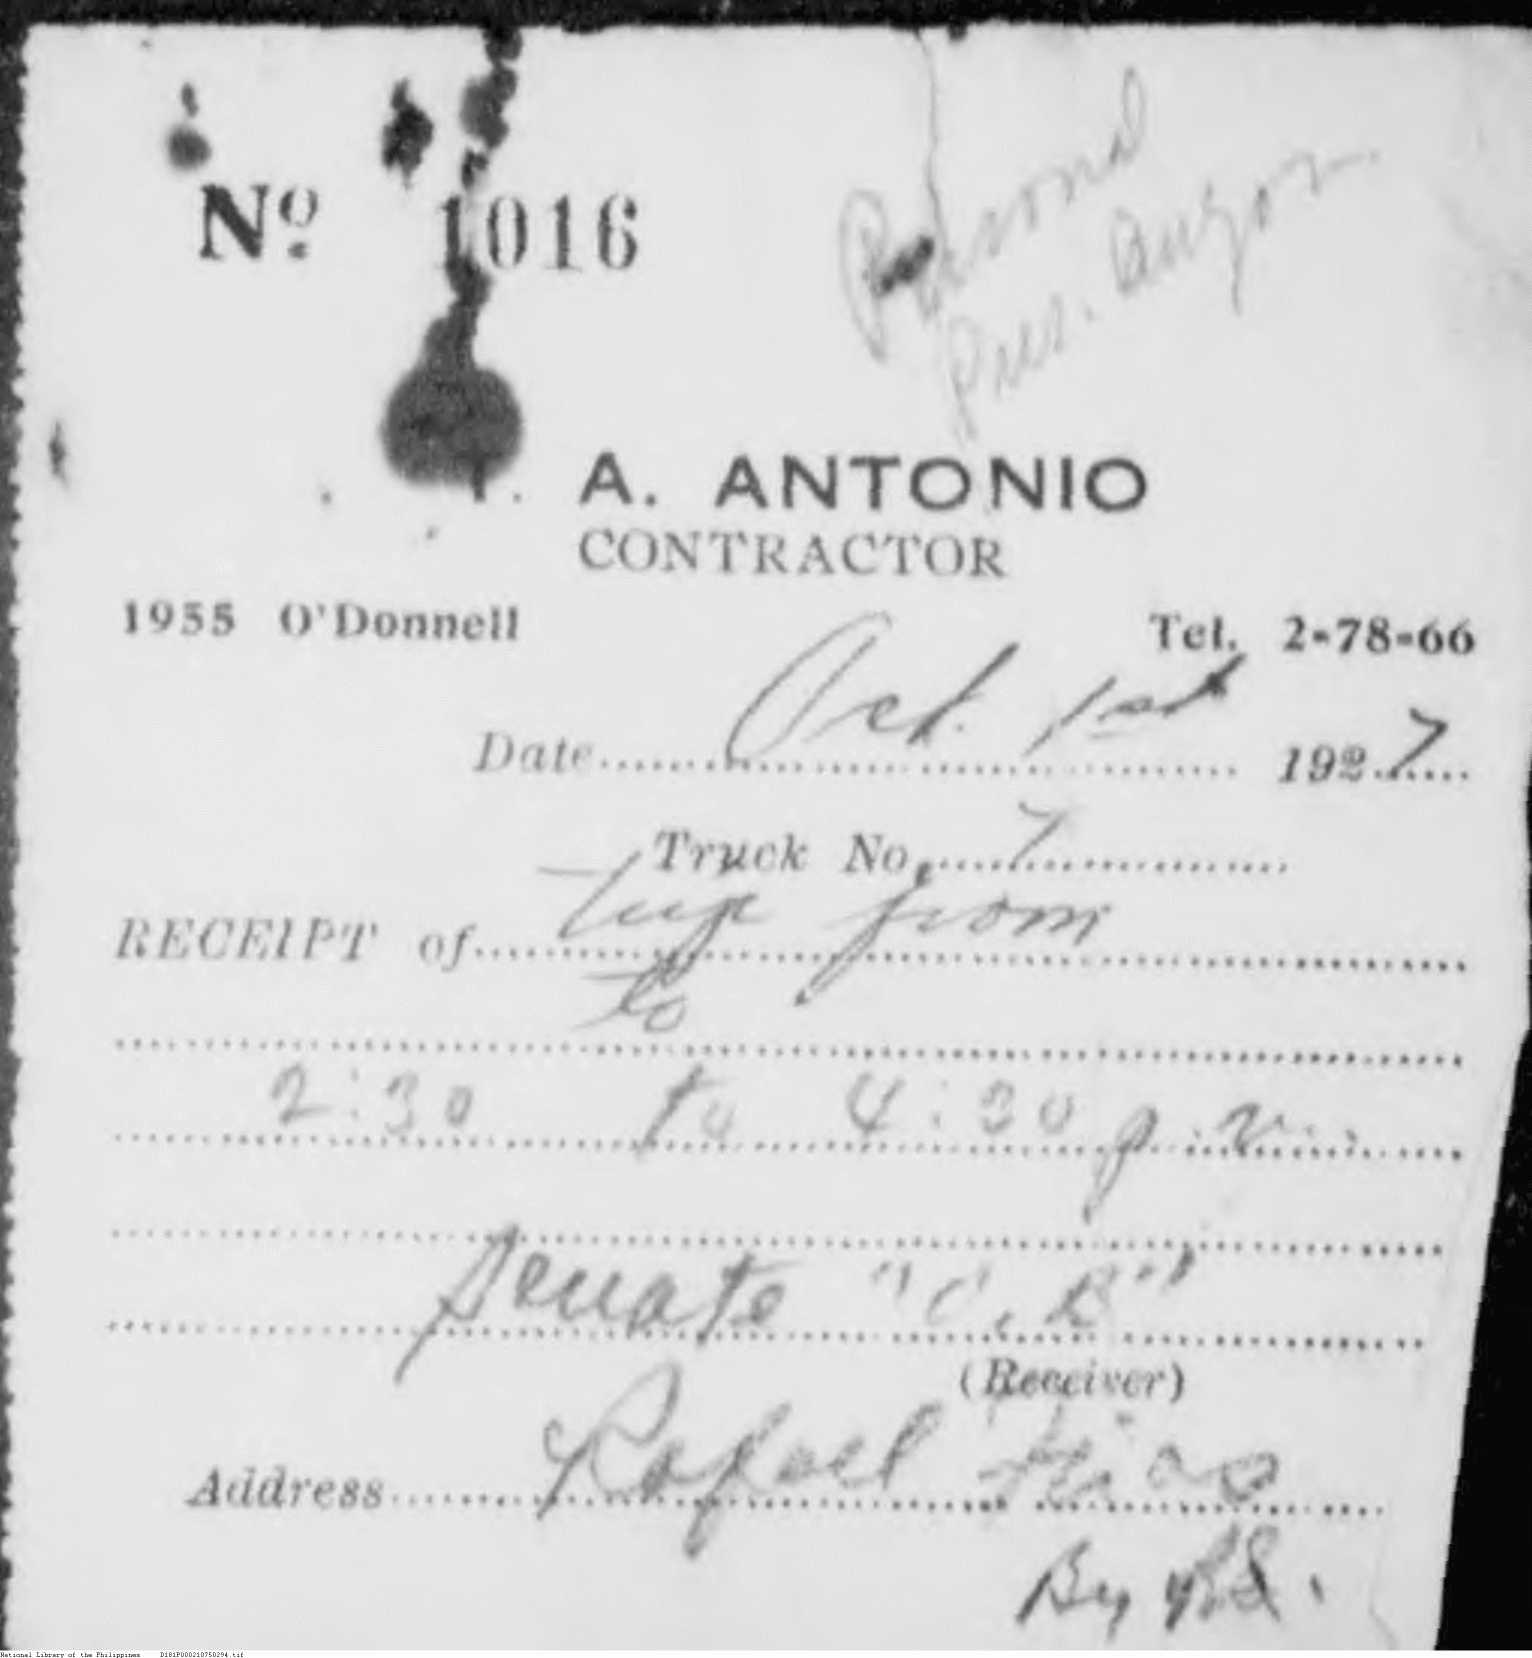 Nº 1016
Personal
Pres. Quezon
T. A. ANTONIO
CONTRACTOR
1955 O'Donnell Tel. 2-78-66
Date Oct. 1st 1927
Truck No. 7
RECEIPT of from
to
2:30 to 4:30 p.m.
Senate
(Receiver)
Address Rafael
By
National Library of the Philippines D181P000210750294.tif